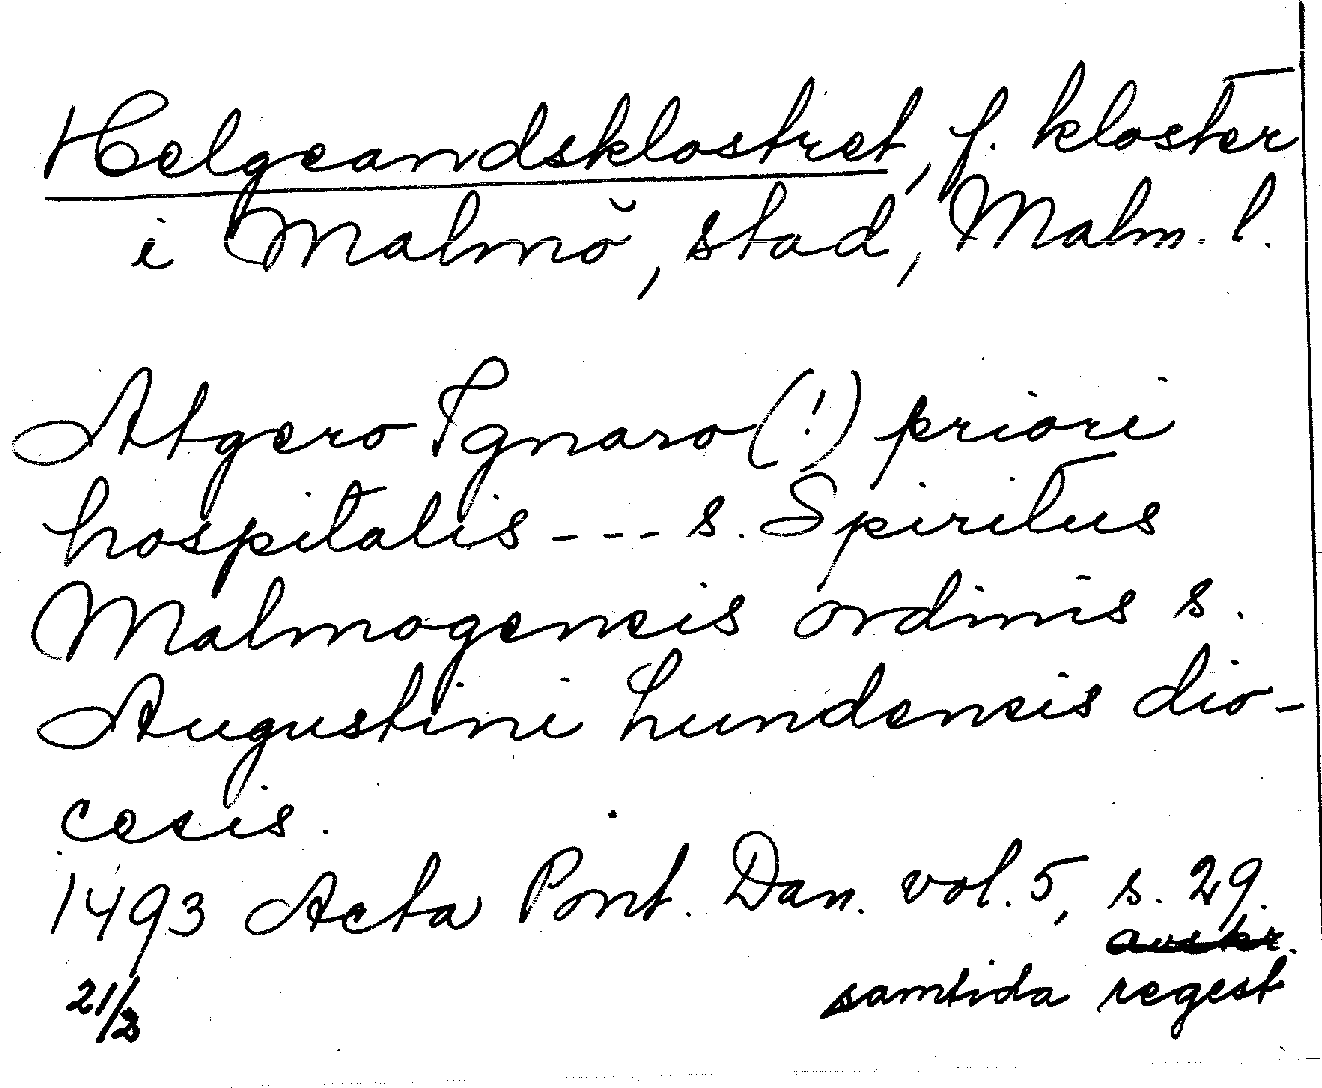 Helgeandsklostret, f. kloster
i Malmö, stad, Malm. l.
Atgero Ignaro (!) priori
hospitalis --- s. Spiritus
Malmogensis ordinis s.
Augustini Lundensis dio-
cesis.
1493 Acta Pont. Dan. vol. 5, s. 29.
avskr.
21/3 samtida regest